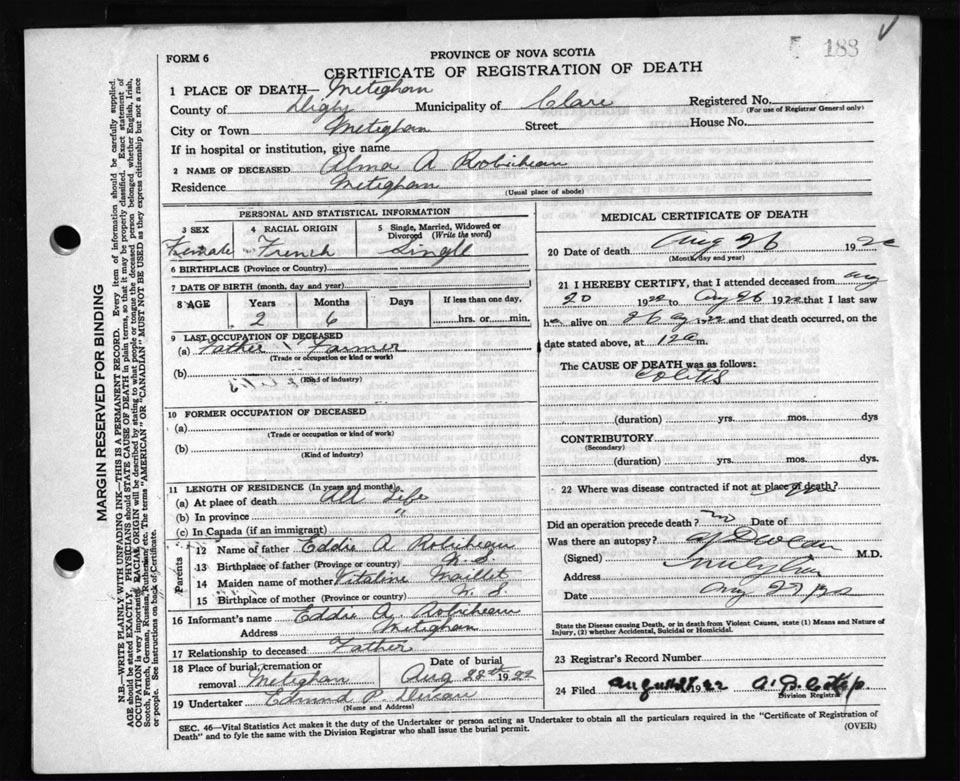 183
FORM 6
PROVINCE OF NOVA SCOTIA
CERTIFICATE OF REGISTRATION OF DEATH
1 PLACE OF DEATH— Meteghan
County of Digby Municipality of Clare Registered No.
(For use of Registrar General only)
City or Town Meteghan Street House No.
If in hospital or institution, give name
2 NAME OF DECEASED Alma A Robicheau
Residence Meteghan
(Usual place of abode)
PERSONAL AND STATISTICAL INFORMATION
3 SEX 4 RACIAL ORIGIN 5 Single, Married, Widowed or Divorced (Write the word)
Female French Single
6 BIRTHPLACE (Province or Country)
7 DATE OF BIRTH (month, day and year)
8 AGE Years Months Days If less than one day,
2 6 hrs. or min.
9 LAST OCCUPATION OF DECEASED
(a) Father Farmer
(Trade or occupation or kind of work)
(b)
(Kind of industry)
10 FORMER OCCUPATION OF DECEASED
(a)
(Trade or occupation or kind of work)
(b)
(Kind of industry)
11 LENGTH OF RESIDENCE (In years and months)
(a) At place of death All Life
(b) In province "
(c) In Canada (if an immigrant)
Parents
12 Name of father Eddie A Robicheau
13 Birthplace of father (Province or country) N. S.
14 Maiden name of mother Vitaline Maillet
15 Birthplace of mother (Province or country) N. S.
16 Informant's name Eddie A Robicheau
Address Meteghan
17 Relationship to deceased Father
18 Place of burial, cremation or removal Meteghan
Date of burial Aug 28th 1922
19 Undertaker Edmund P.
(Name and Address)
MEDICAL CERTIFICATE OF DEATH
20 Date of death Aug 26 192
(Month, day and year)
21 I HEREBY CERTIFY, that I attended deceased from Aug
20 1922 to Aug 26 1922 that I last saw
h alive on 26 1922 and that death occurred, on the
date stated above, at 12 a m.
The CAUSE OF DEATH was as follows:
Colitis
(duration) yrs. mos. dys
CONTRIBUTORY
(Secondary)
(duration) yrs. mos. dys.
22 Where was disease contracted if not at place of death?
Did an operation precede death? no Date of
Was there an autopsy?
(Signed) M.D.
Address
Date Aug 27
State the Disease causing Death, or in death from Violent Causes, state (1) Means and Nature of Injury, (2) whether Accidental, Suicidal or Homicidal.
23 Registrar's Record Number
24 Filed August 1922
Division Registrar
SEC. 46—Vital Statistics Act makes it the duty of the Undertaker or person acting as Undertaker to obtain all the particulars required in the "Certificate of Registration of
Death" and to fyle the same with the Division Registrar who shall issue the burial permit. (OVER)
MARGIN RESERVED FOR BINDING
N.B.—WRITE PLAINLY WITH UNFADING INK—THIS IS A PERMANENT RECORD. Every item of information should be carefully supplied.
AGE should be stated EXACTLY, PHYSICIANS should STATE CAUSE OF DEATH in plain terms, so that it may be properly classified. Exact statement of
OCCUPATION is very important. RACIAL ORIGIN will be described by stating to what people or tongue the deceased person belonged whether English, Irish,
Scotch, French, German, Russian, Ruthenian, etc. The terms "AMERICAN" OR "CANADIAN" MUST NOT BE USED as they express citizenship but not a race
or people. See instructions on back of Certificate.